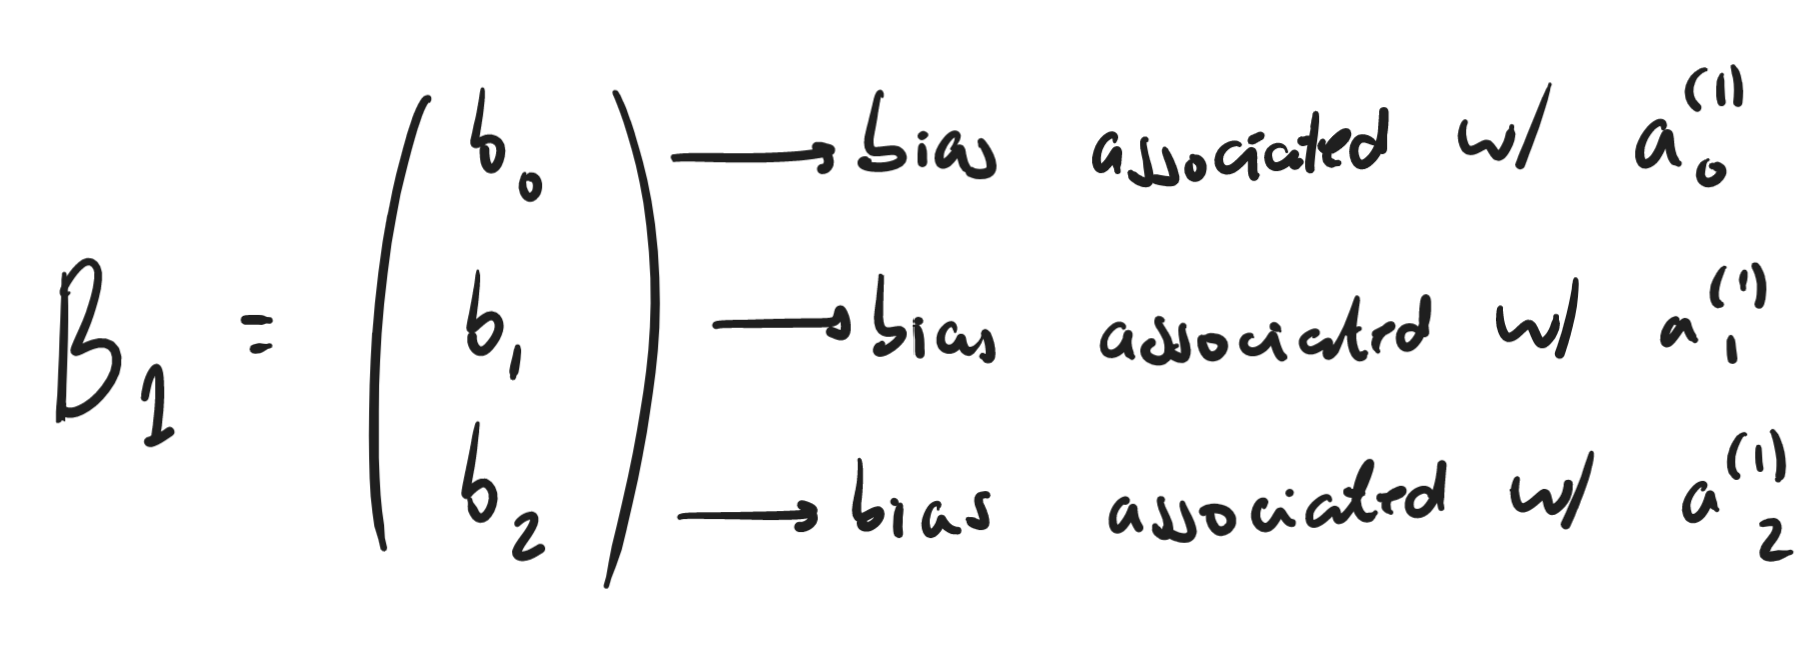 b₀ → bias associated w/ a₀⁽¹⁾
B₁ = b₁ → bias associated w/ a₁⁽¹⁾
b₂ → bias associated w/ a₂⁽¹⁾